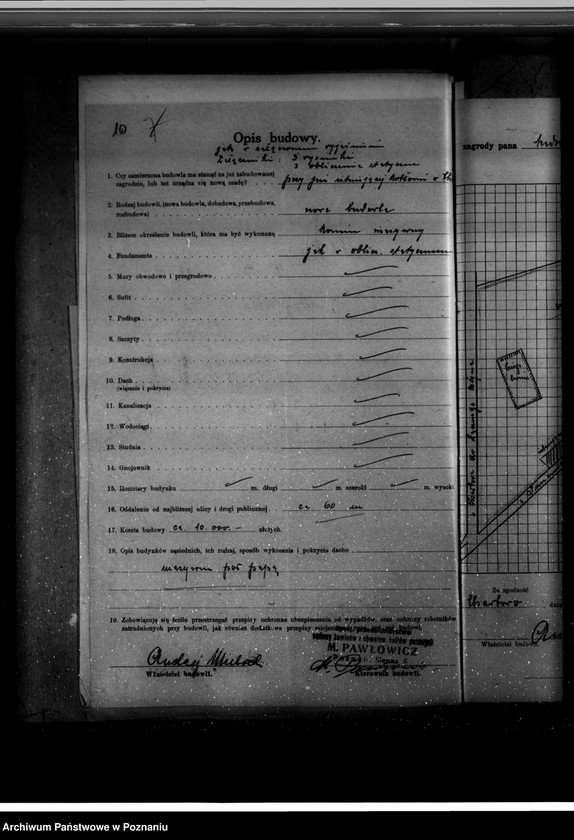 10
Opis budowy.
3 rysunki
1. Czy zamierzona budowla ma stanąć na już zabudowanej
zagrodzie, lub też urządza się nową osadę? przy już istniejącej
2. Rodzaj budowli, (nowa budowla, dobudowa, przebudowa,
rozbudowa) nowa budowla
3. Bliższe określenie budowli, która ma być wykonaną komin murowany
4. Fundamenta jak w oblicz. statycznem
5. Mury obwodowe i przegrodowe
6. Sufit
7. Podłoga
8. Szczyty
9. Konstrukcja
10. Dach
(wiązanie i pokrycie)
11. Kanalizacja
12. Wodociągi
13. Studnia
14. Gnojownik
15. Rozmiary budynku m. długi m szeroki m. wysoki
16. Oddalenie od najbliższej ulicy i drogi publicznej ca 60 m
17. Koszta budowy ca 10.000.- złotych.
18. Opis budynków sąsiednich, ich rodzaj, sposób wykonania i pokrycia dachu
murowane pod papą
19. Zobowiązuję się ściśle przestrzegać przepisy ochronne ubezpieczenia od wypadków, oraz ochrony robotników
zatrudnionych przy budowli, jak również dodatkowe przepisy
M. PAWŁOWICZ
Andrzej
Właściciel budowli.
Kierownik budowli.
zagrody pana
Za zgodność
Właściciel budowli
Archiwum Państwowe w Poznaniu